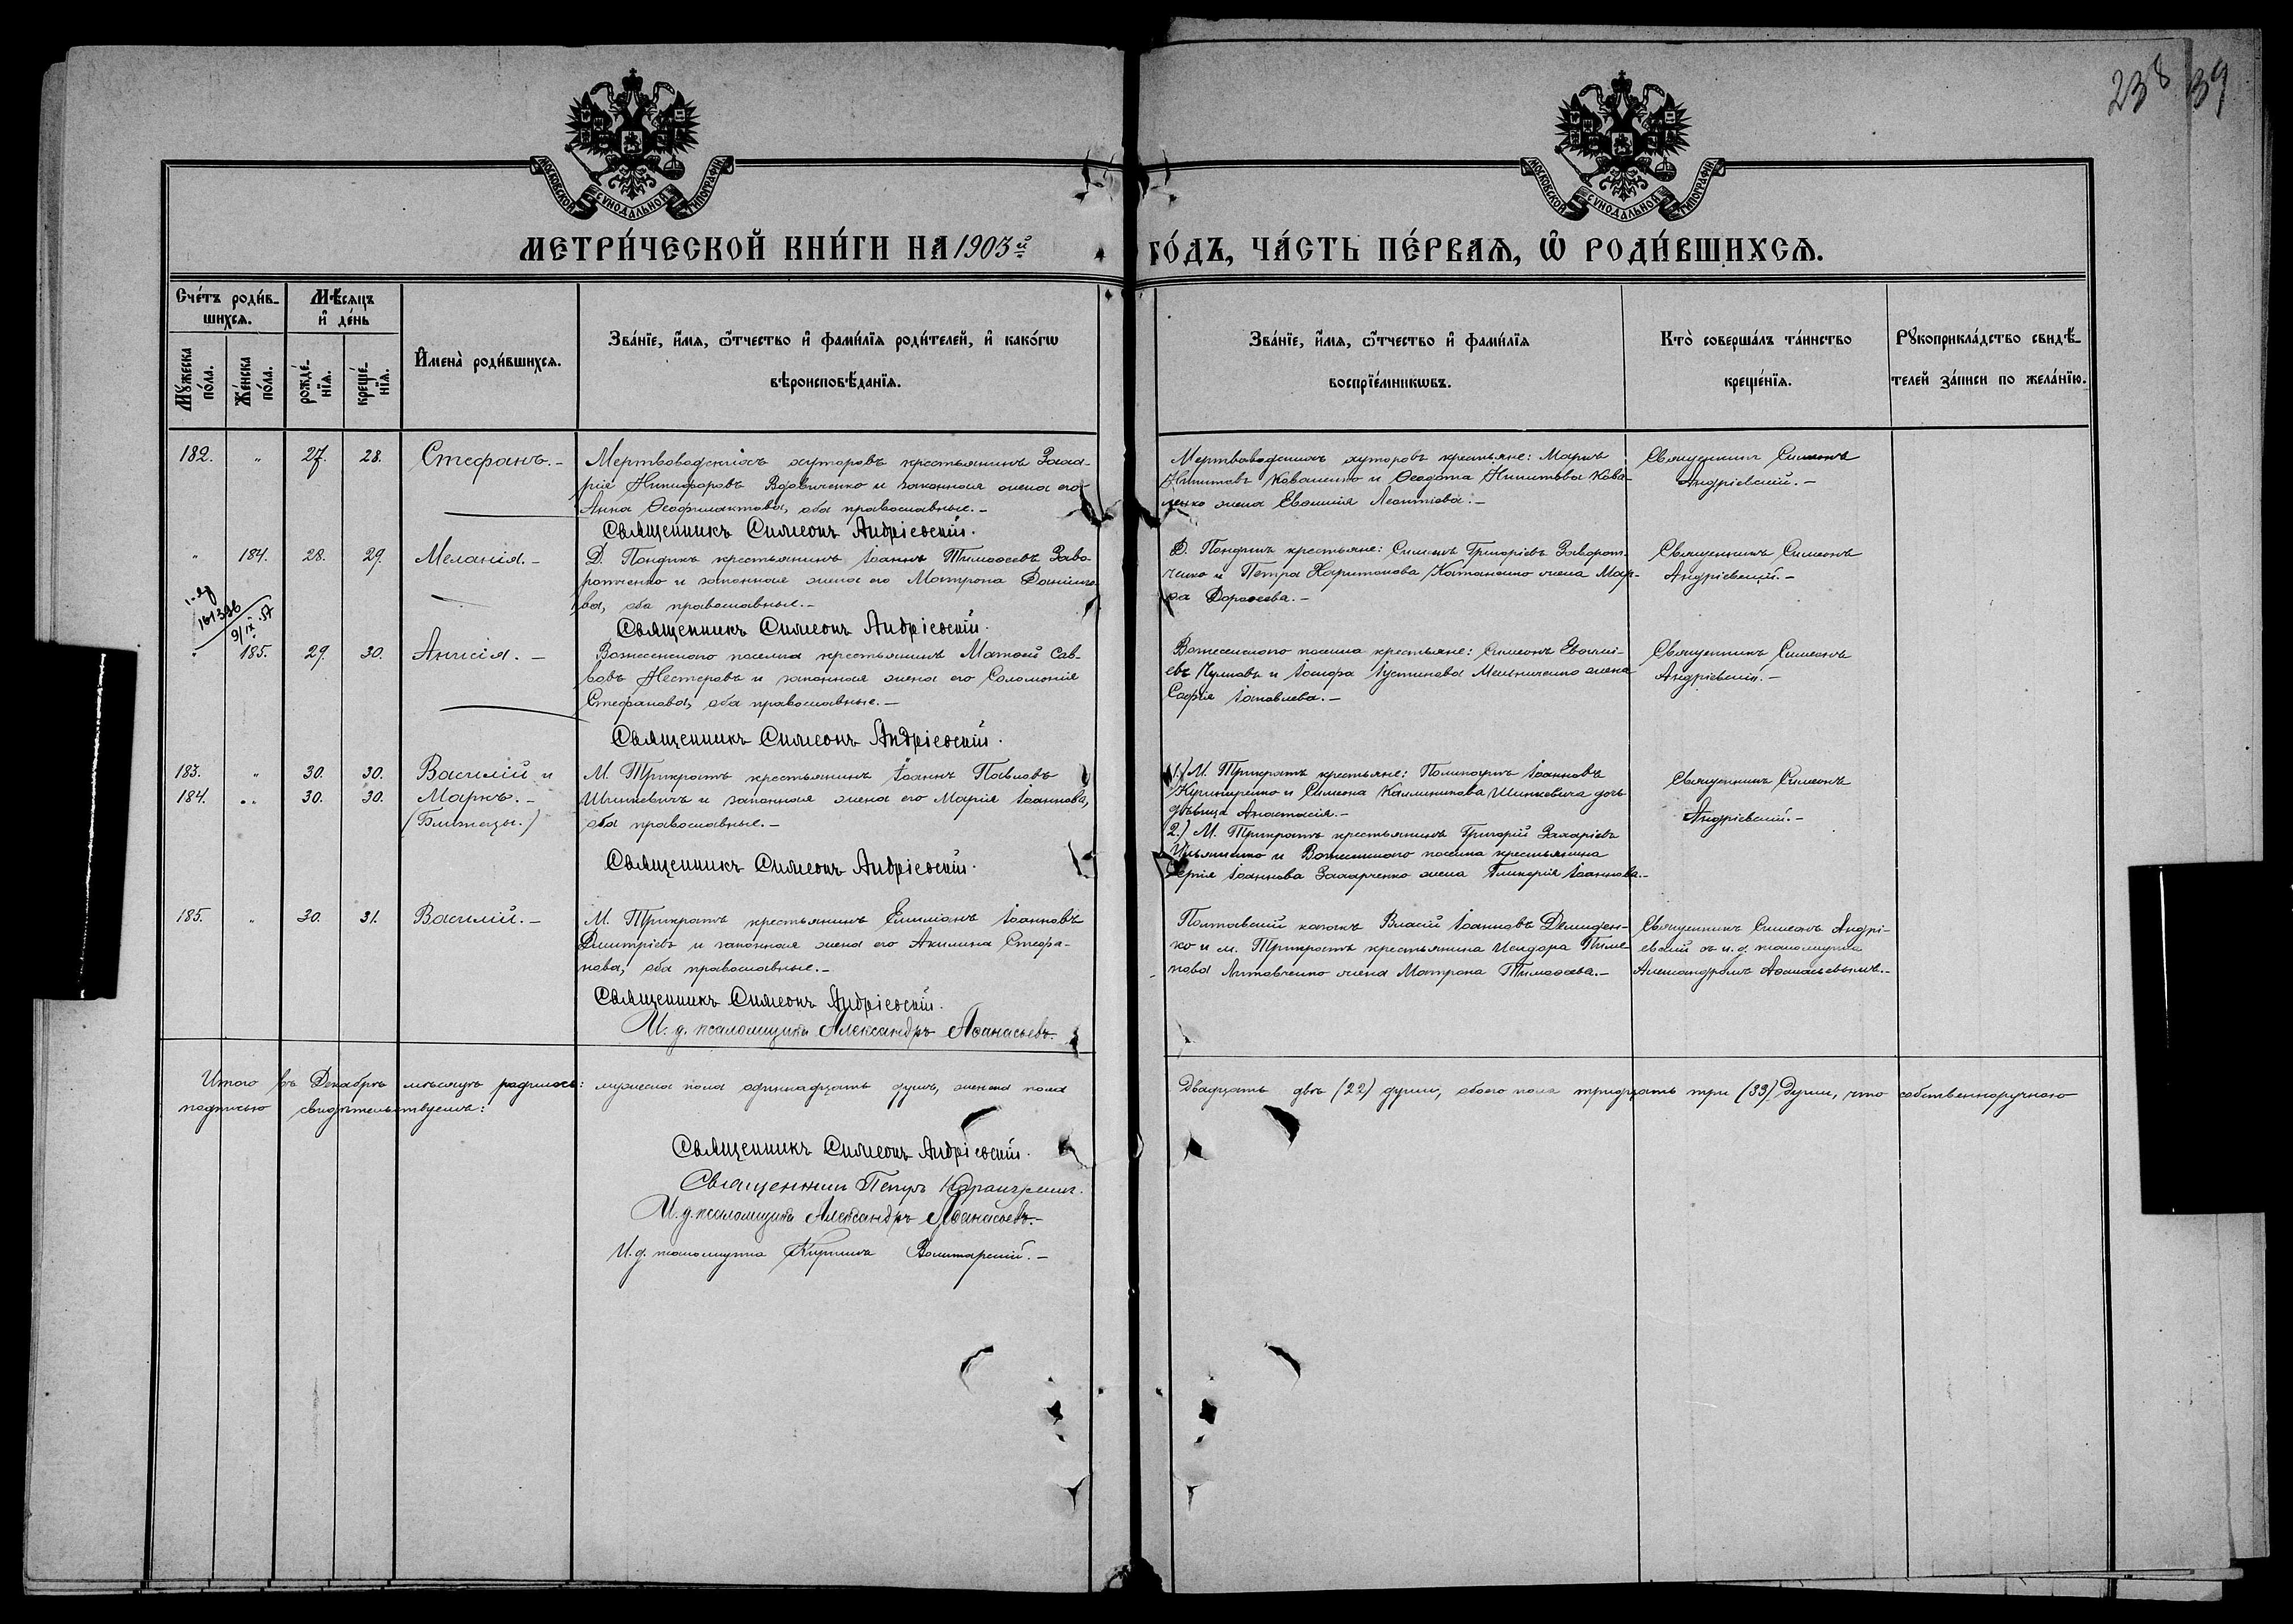 238 39
МОСКОВСКОЙ СѴНОДАЛЬНОЙ ТИПОГРАФІИ
МОСКОВСКОЙ СѴНОДАЛЬНОЙ ТИПОГРАФІИ
МЕТРИ́ЧЕСКОЙ КНИ́ГИ НА 1903й ГО́ДЪ, ЧА́СТЬ ПЕ́РВАѦ, Ѡ РОДИ́ВШИХСѦ.
Сче́тъ роди́в-
шихсѧ.
Мѣ́сяцъ
и҆ де́нь
Мꙋжеска
по́ла.
Же́нска
по́ла.
рожде́-
нїѧ.
креще́-
нїѧ.
И҆мена̀ роди́вшихсѧ.
Зва́нїе, и҆́мѧ, ѻ҆́тчество и҆ фами́лїѧ роди́телей, и҆ како́гѡ
вѣроисповѣ́данїѧ.
Зва́нїе, и҆́мѧ, ѻ҆́тчество и҆ фами́лїѧ
воспрїе́мникѡвъ.
Кто̀ соверша́лъ та́инство
креще́нїѧ.
Рꙋкоприкла́дство свидѣ́-
телей за́писи по жела́нїю.
182. " 27. 28. Стефанъ.-
Мертвоводскихъ хуторовъ крестьянинъ Заха-
рія Никифоровъ Вдовиченко и законная жена его
Анна Ѳеофилактова, оба православные.-
Священникъ Симеонъ Андріевскій.
Мертвоводскихъ хуторовъ крестьяне: Маркъ
Никитовъ Коваленко и Ѳеодота Никитова Кова-
ленко жена Евфимія Леонтіева.-
Священникъ Симеонъ
Андріевскій.-
" 184. 28. 29. Меланія.-
Д. Пондикъ крестьянинъ Іоаннъ Тимоѳеевъ Заво-
ротченко и законная жена его Матрона Даніило-
ва, оба православные.-
Священникъ Симеонъ Андріевскій.
Д. Пондикъ крестьяне: Симеонъ Григоріевъ Заворот-
ченко и Петра Харитонова Катаненко жена Мар-
ѳа Дороѳеева.-
Священникъ Симеонъ
Андріевскій.-
161336
9/IX.57
" 185. 29. 30. Анисія.-
Вознесенскаго поселка крестьянинъ Матѳей Сав-
вовъ Нестеровъ и законная жена его Соломонія
Стефанова, оба православные.-
Священникъ Симеонъ Андріевскій.
Вознесенскаго поселка крестьяне: Симеонъ Евфимі-
евъ Чумакъ и Іосифа Іустинова Мельниченко жена
Софія Іаковлева.-
Священникъ Симеонъ
Андріевскій.-
183. " 30. 30. Василій и
184. " 30. 30. Маркъ.-
(Близнецы.)
М. Трикратъ крестьянинъ Іоаннъ Павловъ
Шинкевичъ и законная жена его Марія Іоаннова,
оба православные.-
Священникъ Симеонъ Андріевскій.
1.) М. Трикратъ крестьяне: Поликарпъ Іоанновъ
и Симеона Каллиникова Шинкевича дочь
дѣвица Анастасія.-
2.) М. Трикратъ крестьянинъ Григорій Захаріевъ
Ильяшенко и Вознесенскаго поселка крестьянина
Сергія Іоаннова Захарченко жена Гликерія Іоаннова.-
Священникъ Симеонъ
Андріевскій.-
185. " 30. 31. Василій.-
М. Трикратъ крестьянинъ Емиліанъ Іоанновъ
Димитріевъ и законная жена его Акилина Стефа-
нова, оба православные.-
Священникъ Симеонъ Андріевскій.
И. д. псаломщика Александръ Аѳанасьевъ.
Полтавскій козакъ Власій Іоанновъ Демиден-
ко и м. Трикратъ крестьянина Исидора Пиме-
нова Литовченко жена Матрона Тимоѳеева.-
Священникъ Симеонъ Андрі-
евскій съ и. д. псаломщика
Александромъ Аѳанасьевымъ.-
Итого въ Декабрѣ мѣсяцѣ родилось: мужеска пола одиннадцать душъ, женска пола двадцать двѣ (22) души, обоего пола тридцать три (33) души, что собственноручною
подписью свидѣтельствуемъ:
Священникъ Симеонъ Андріевскій.
Священникъ Петръ
И. д. псаломщика Александръ Аѳанасьевъ.-
И. д. псаломщика Кирилъ